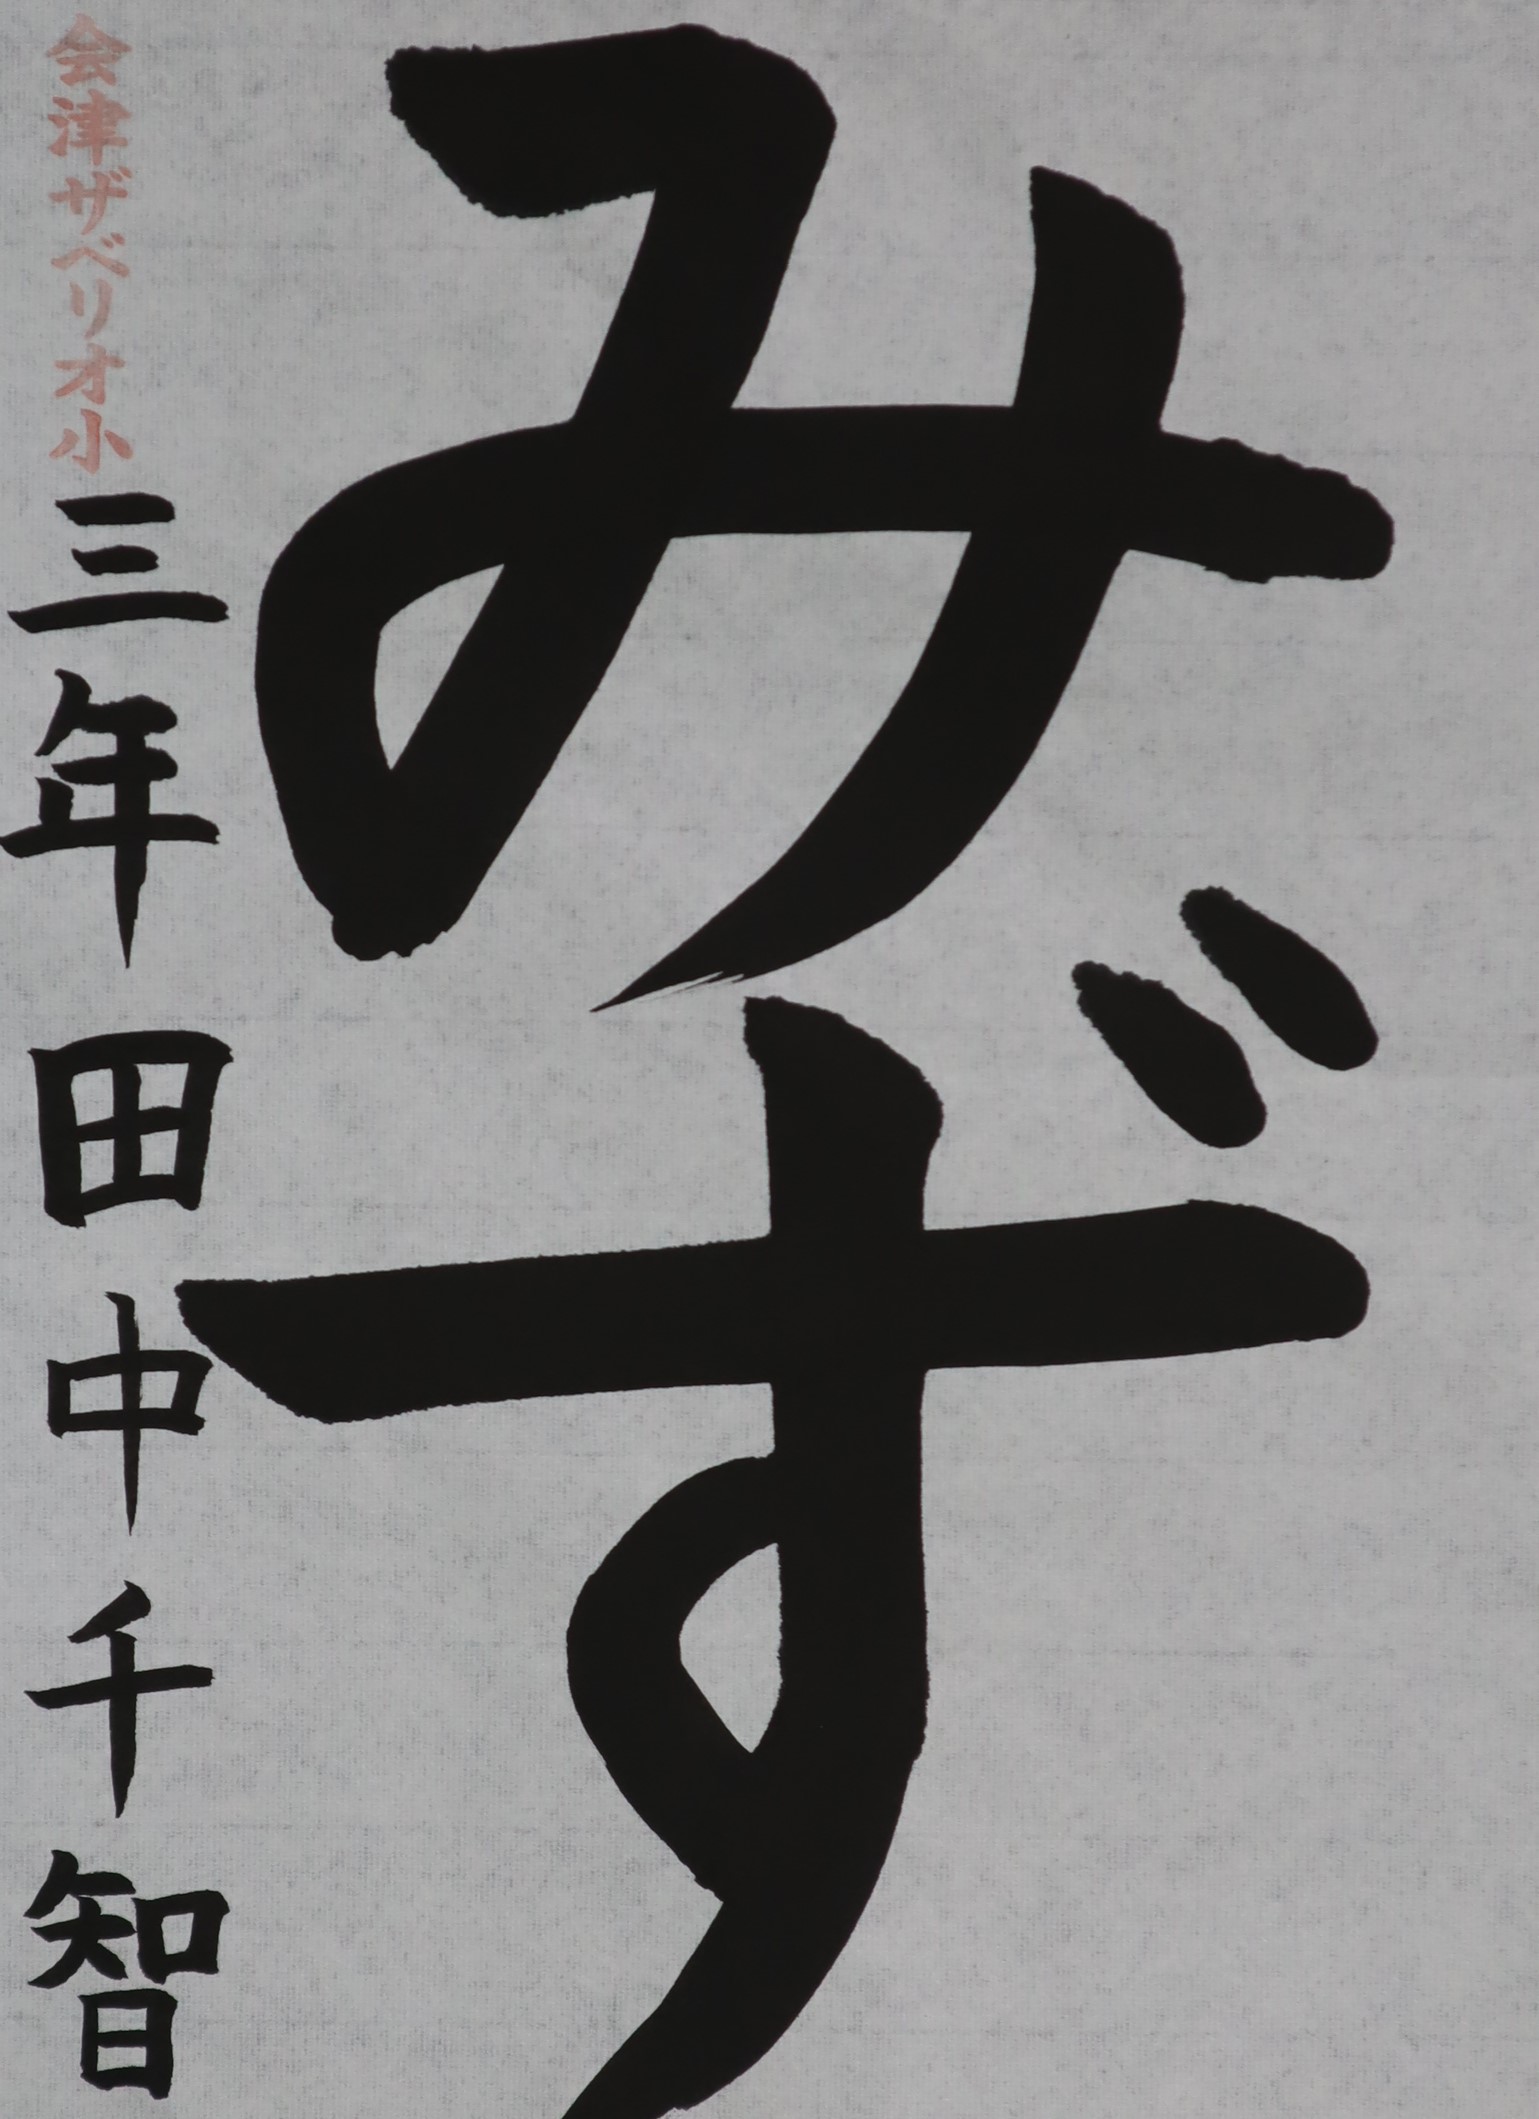 みず
会津ザベリオ小三年田中千智